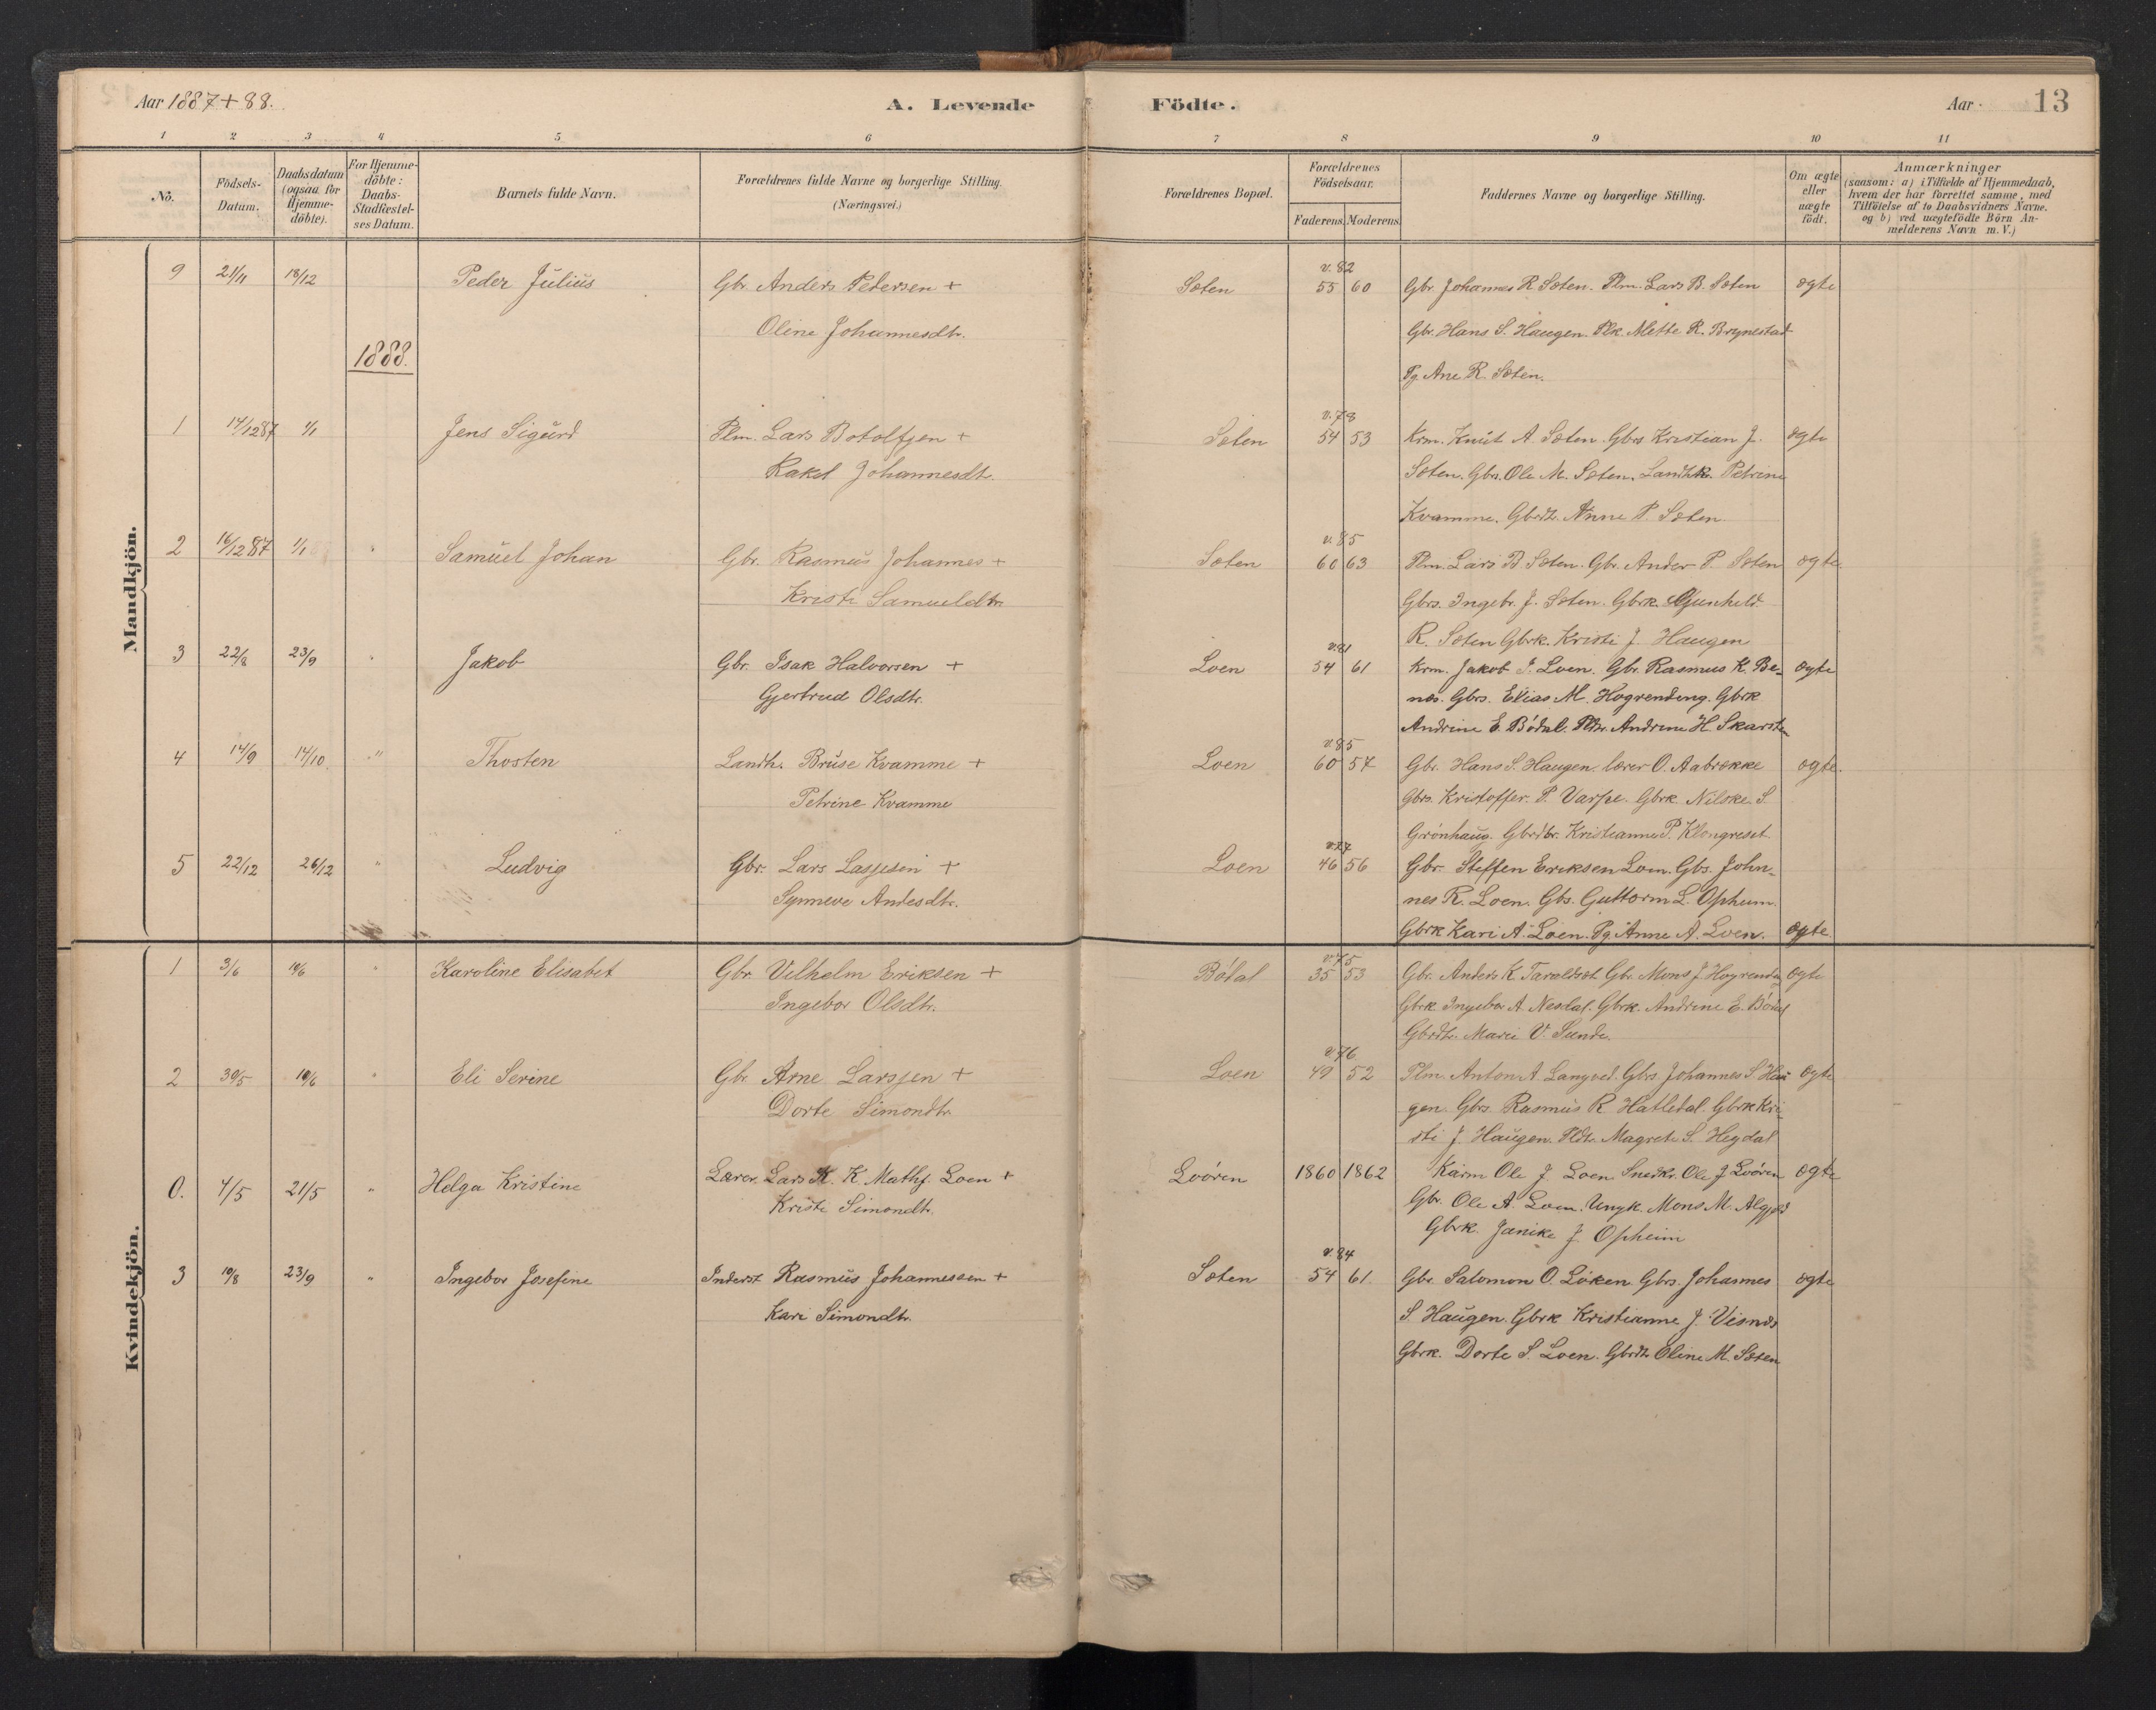 Aar 1887+88.
A. Levende Födte.
Aar
13
1 2 3 4 5 6 7 8 9 10 11
No.
Födsels-Datum.
Daabsdatum (ogsaa for Hjemmedöbte).
For Hjemmedöbte: Daabs-Stadfæstelses Datum.
Barnets fulde Navn.
Forældrenes fulde Navne og borgerlige Stilling. (Næringsvei.)
Forældrenes Bopæl.
Forældrenes Födselsaar.
Faderens. Moderens.
Faddernes Navne og borgerlige Stilling.
Om ægte eller uægte födt.
Anmærkninger
(saasom: a) i Tilfælde af Hjemmedaab, hvem der har forrettet samme, med Tilföielse af to Daabsvidners Navne. og b) ved uægtefödte Börn Anmelderens Navn m. V.)
Mandkjön.
9 21/11 18/12 Peder Julius Gbr. Anders Pedersen + Sæten v. 82 55 60 Gbr. Johannes R. Sæten. Plm. Lars B. Sæten ægte
Oline Johannesdtr. Gbr. Hans S. Haugen. Plk. Mette R. Brynestad
1888. Pg. Ane R. Sæten.
1 14/12 87 1/1 Jens Sigurd Plm. Lars Botolfsen + Sæten v. 78 54 53 Krm. Knut A Sæten. Gbrs Kristian J. ægte
Rakel Johannesdtr. Sæten. Gbrs. Ole M. Sæten. Landhk. Petrine
Kvamme. Gbrdt. Anne P. Sæten.
2 16/12 87 1/1 " Samuel Johan Gbr. Rasmus Johannes + Sæten v. 85 60 63 Plm. Lars B Sæten. Gbr. Ander P. Sæten ægte.
Kristi Samueldtr. Gbrs. Ingebr. J. Sæten. Gbrk. Gunhild
R. Sæten Gbrk. Kristi J. Haugen
3 22/8 23/9 " Jakob Gbr. Isak Halvorsen + Loen v. 81 54 61 Krm. Jakob J. Loen. Gbr. Rasmus K. Be- ægte
Gjertrud Olsdtr. næs. Gbrs. Elias M. Hogrendeng. Gbrk
Andrine E. Bödal. Andrine H. Skarsten
4 14/9 14/10 " Thosten Landh. Bruse Kvamme + Loen v. 85 60 57 Gbr. Hans S. Haugen. lærer O. Aabrekke ægte.
Petrine Kvamme Gbrs. Kristoffer P. Varpe. Gbrk. Nilske S.
Grönhaug. Gbrdtr. Kristianne P.
5 22/12 26/12 " Ludvig Gbr. Lars Lassesen + Loen v. 77 46 56 Gbr. Steffen Eriksen Loen. Gbs. Johan-
Synneve Andesdtr. nes R. Loen. Gbs. Guttorm L. Opheim.
Gbrk Kari A. Loen. Pg. Anne A. Loen. ægte
Kvindekjön.
1 3/6 10/6 " Karoline Elisabet Gbr. Vilhelm Eriksen + Bödal v. 75 35 53 Gbr. Anders K. Taraldset Gbr. Mons J. Hogrending ægte
Ingebor Olsdtr. Gbrk Ingebor A Nesdal. Gbrk. Andrine E. Bödal
Gbrdtr. Marie V. Sunde.
2 30/5 10/6 " Eli Serine Gbr Arne Larssen + Loen v. 76 49 52 Plm. Anton A. Langved. Gbrs. Johannes S. Hau- ægte
Dorte Simondtr. gen. Gbrs. Rasmus R. Hatledal. Gbrk Kri-
sti J. Haugen. Pldtr. Magrete S. Hegdal
0. 4/5 21/5 " Helga Kristine Lærer. Lars K. K. Math. Loen + Loören 1860 1862 Karm Ole J. Loen Snedkr. Ole J Loören ægte
Kristi Simondtr. Gbr. Ole A. Loen. Ungk. Mons M.
Gbrk. Janike J. Opheim
3 10/8 23/9 " Ingebor Josefine Inderst Rasmus Johannessen + Sæten v. 84 54 61. Gbr. Salomon O. Löken. Gbrs. Johannes ægte
Kari Simondtr. S. Haugen. Gbrk Kristianne J. Visnæs
Gbrk. Dorte S. Loen. Gbrdt. Oline M. Sæten